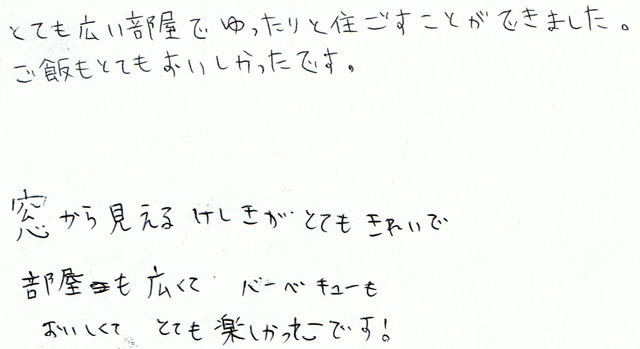 とても広い部屋でゆったりと住ごすことができました。
ご飯もとてもおいしかったです。
窓から見えるけしきがとてもきれいで
部屋も広くて バーベキューも
おいしくて とても楽しかったです!